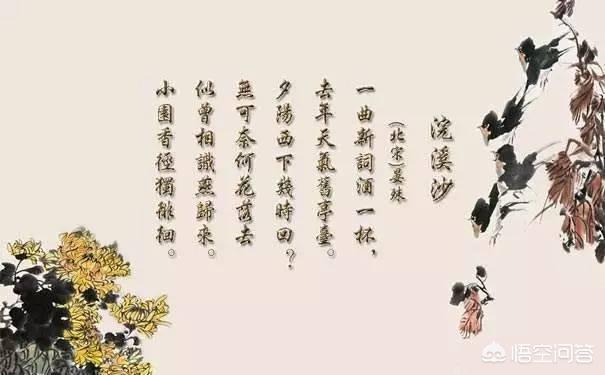 浣溪沙
(北宋)晏殊
一曲新詞酒一杯，
去年天氣舊亭臺。
夕陽西下幾時回？
無可奈何花落去
似曾相識燕歸來。
小園香徑獨徘徊。
悟空问答